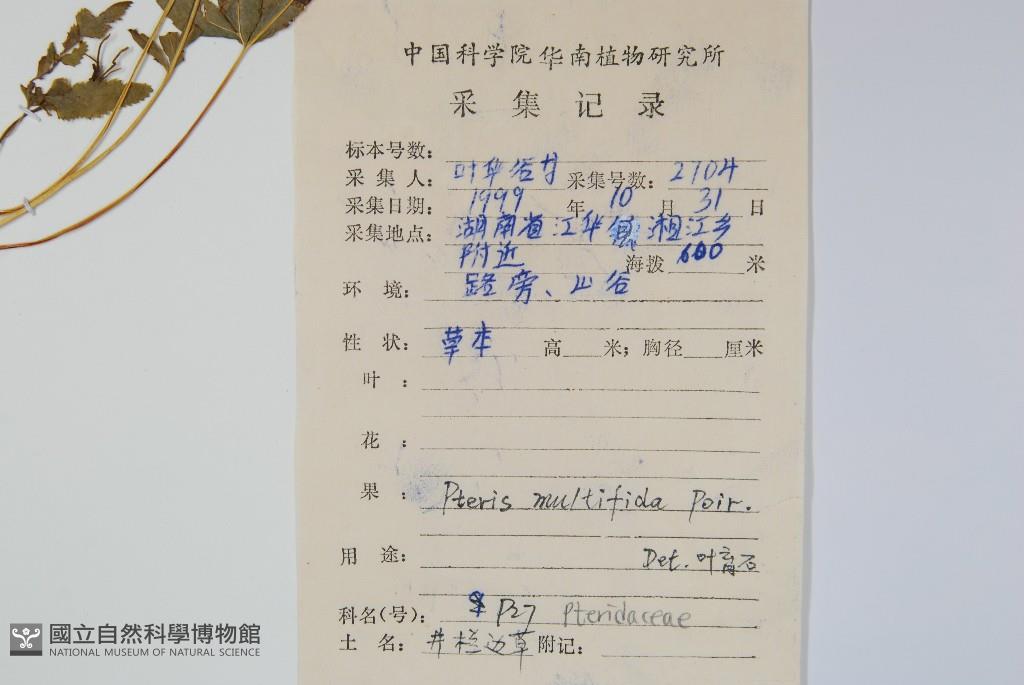 中国科学院华南植物研究所
采集记录
标本号数:
采集人: 叶华谷 采集号数: 2704
采集日期: 1999 年 10 月 31 日
采集地点: 湖南省江华 湘江乡
附近 海拨 600 米
环境: 路旁、山谷
性状: 草本 高 米; 胸径 厘米
叶:
花:
果: Pteris multifida Poir.
用途: Det. 叶育石
科名(号): P27 Pteridaceae
土名: 井栏边草 附记:
國立自然科學博物館
NATIONAL MUSEUM OF NATURAL SCIENCE